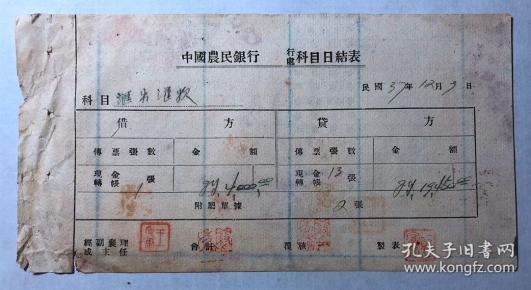 中國農民銀行 行處 科目日結表
民國37年12月3日
科目 滙出滙款
借方 貸方
傳票張數 金額 傳票張數 金額
現金 現金 13 張
轉帳 1 轉帳 張
附屬單據 2 張
經副襄理 會計 覆核 製表
或主任
孔夫子旧书网
www.kongfz.com